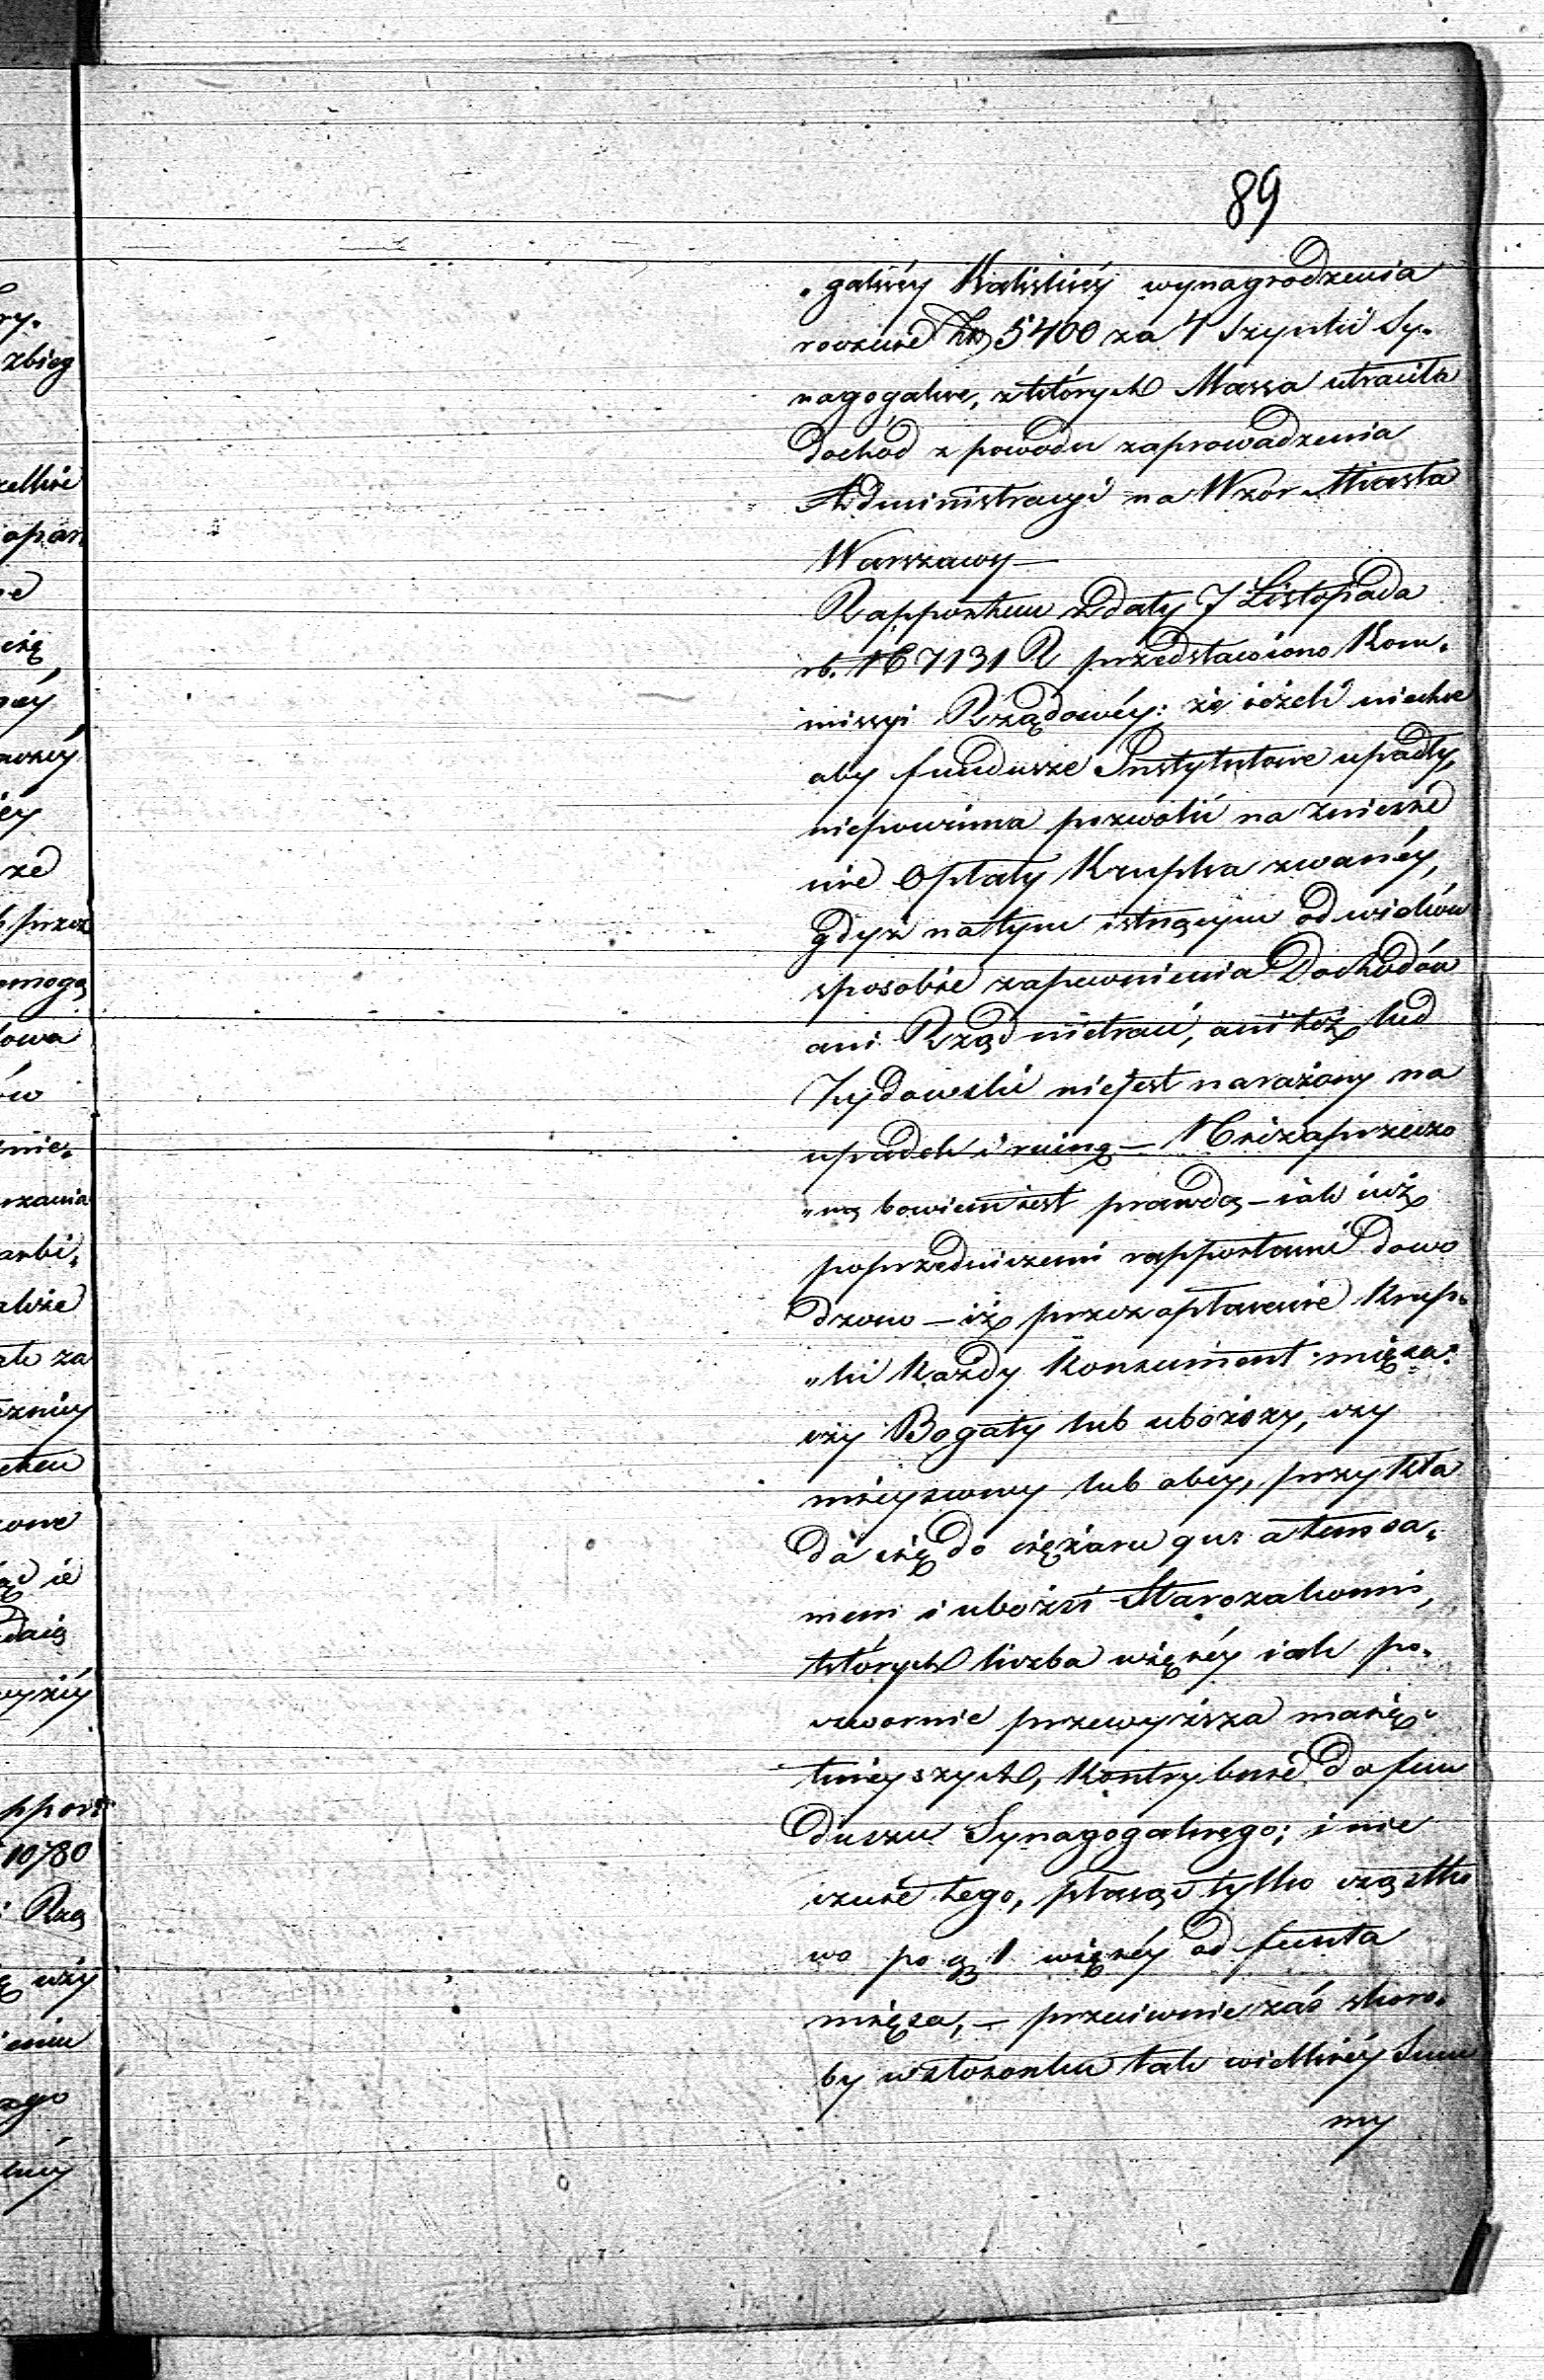 89
„galnéy Kaliskiéy wynagrodzenia
rocznie Złp 5400 za 4 Szynki Sy„
nagogalne, z których Massa utraciła
dochód z powodu zaprowadzenia
Administracyi na Wzór Miasta
Warszawy —
Rapportem z daty 7 Listopada
rb. N 7131 R przedstawiono Kom„
missyi Rządowéy: że ieżeli niechce
aby fundusze Instytutowe upadły,
niepowinna pozwolić na zniesie
nie Opłaty Krupka zwanéy,
gdyż na tym istnącym od wieków
sposobie zapewnienia Dochodów
ani Rząd nietraci, ani też lud
Żydowski niejest narażony na
upadek i ruinę — Niezaprzeczo
„ną bowiem iest prawdą — iak iuż
poprzedniczemi rapportami dowo
dzono — iż przez opłacanie Krup„
„ki Każdy Konsument :mięsa:
czy Bogaty lub uboższy, czy
mieyscowy lub obcy, przykła
da się do ciężaru gu: a tem sa„
mem i ubożsi Starozakonni,
których liczba więcéy iak po„
czwornie przewyższa maię„
tnieyszych, Kontrybuie do fun
duszu Synagogalnego; i nie
czuie tego, płacąc tylko cząstko
wo po gr 1 więcéy od funta
mięsa, — przeciwnie zaś skoro„
by w stosunku tak wielkiéy Sum
my
zbieg
10780